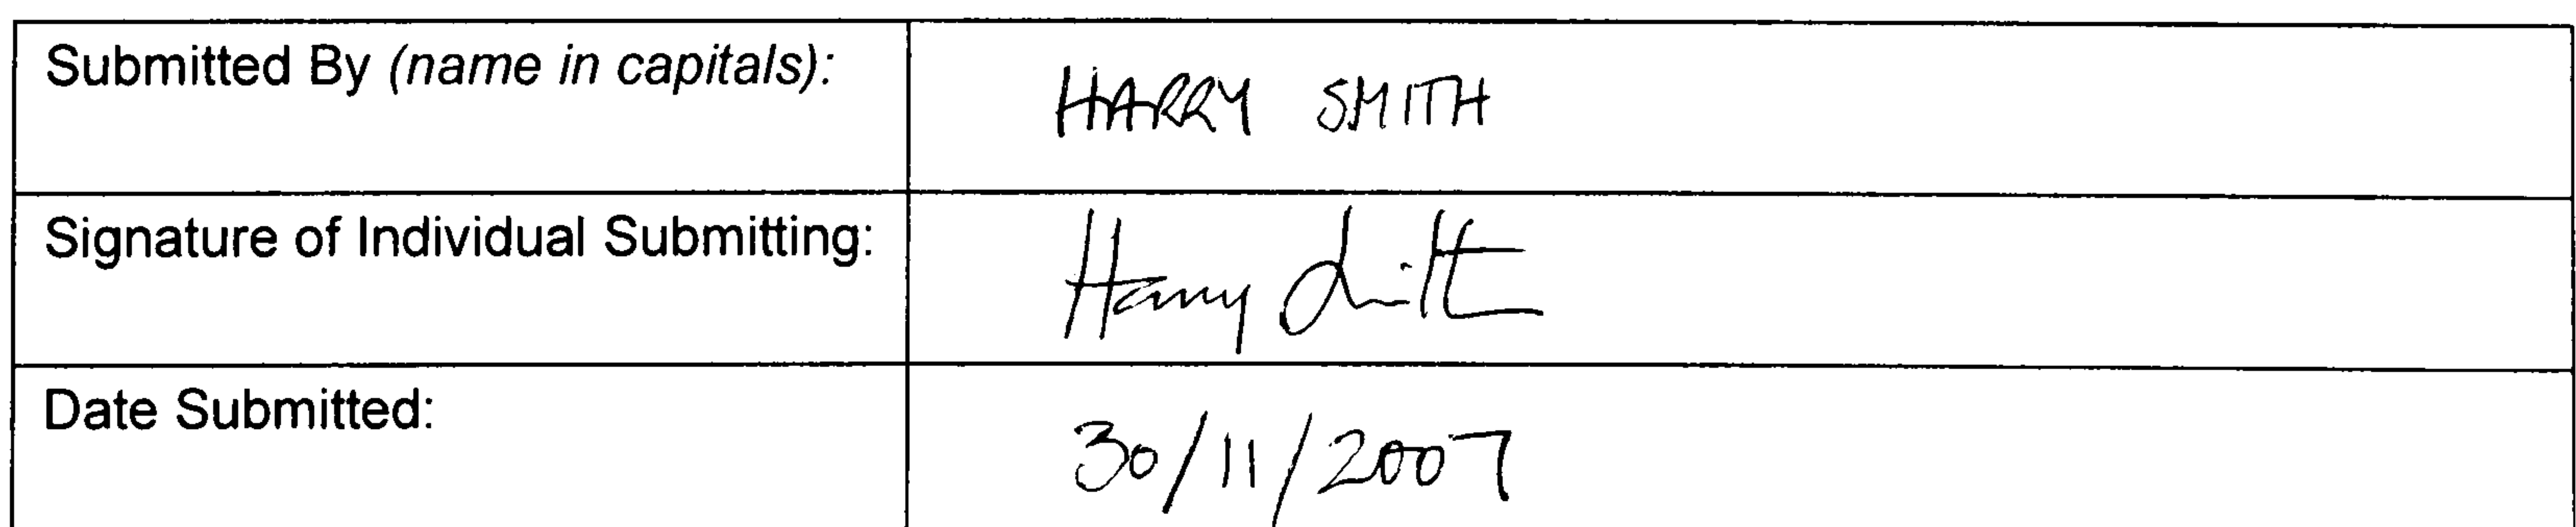 Submitted By (name in capitals): HARRY SMITH
Signature of Individual Submitting: Harry Smith
Date Submitted: 30/11/2007